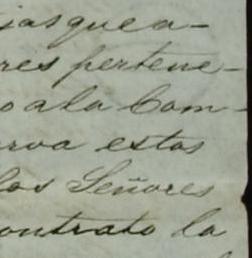 jas que a-
res pertene-
o a la Com-
rva estos
los Señores
ontrato la